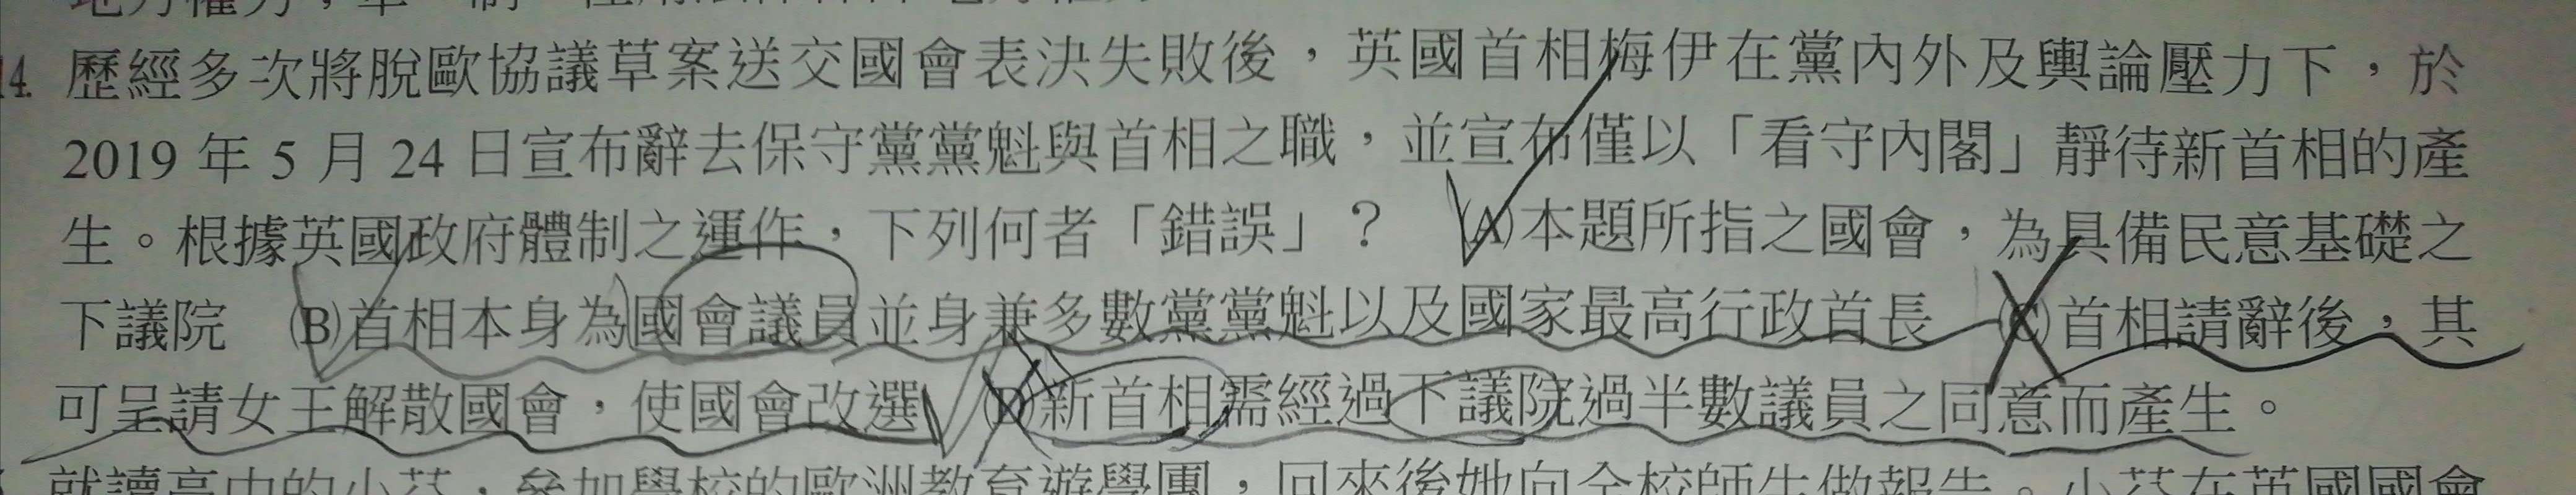 14. 歷經多次將脫歐協議草案送交國會表決失敗後，英國首相梅伊在黨內外及輿論壓力下，於
2019 年 5 月 24 日宣布辭去保守黨黨魁與首相之職，並宣布僅以「看守內閣」靜待新首相的產
生。根據英國政府體制之運作，下列何者「錯誤」？ (A)本題所指之國會，為具備民意基礎之
下議院 (B)首相本身為國會議員並身兼多數黨黨魁以及國家最高行政首長 (C)首相請辭後，其
可呈請女王解散國會，使國會改選 (D)新首相需經過下議院過半數議員之同意而產生。
就讀高中的小芬，參加學校的歐洲教育遊學團，回來後她向全校師生做報告。小芬在英國國會